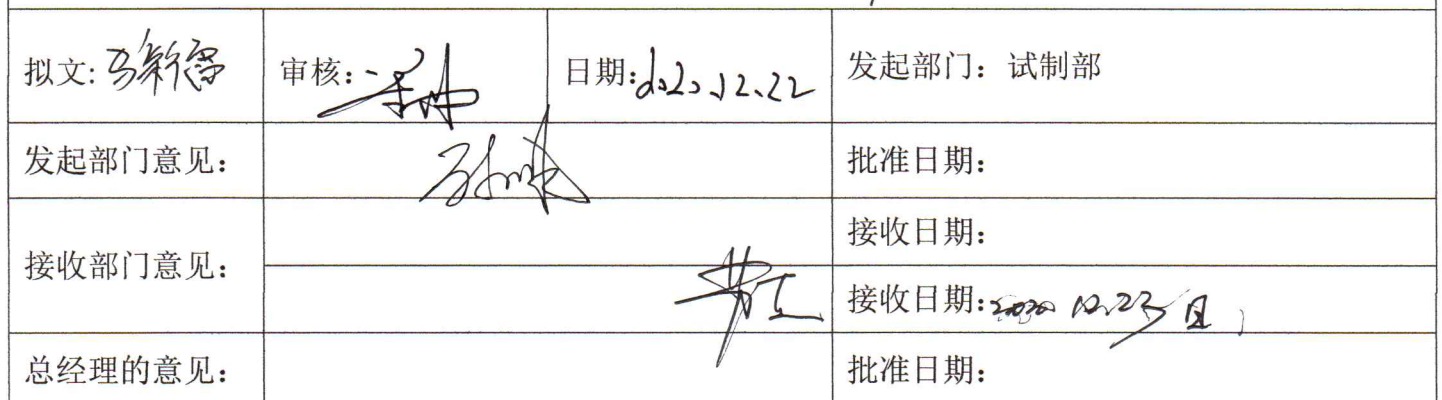 拟文: 审核: 日期:2020.12.22 发起部门：试制部
发起部门意见： 批准日期：
接收部门意见： 接收日期：
接收日期:2020 12.23日
总经理的意见： 批准日期：